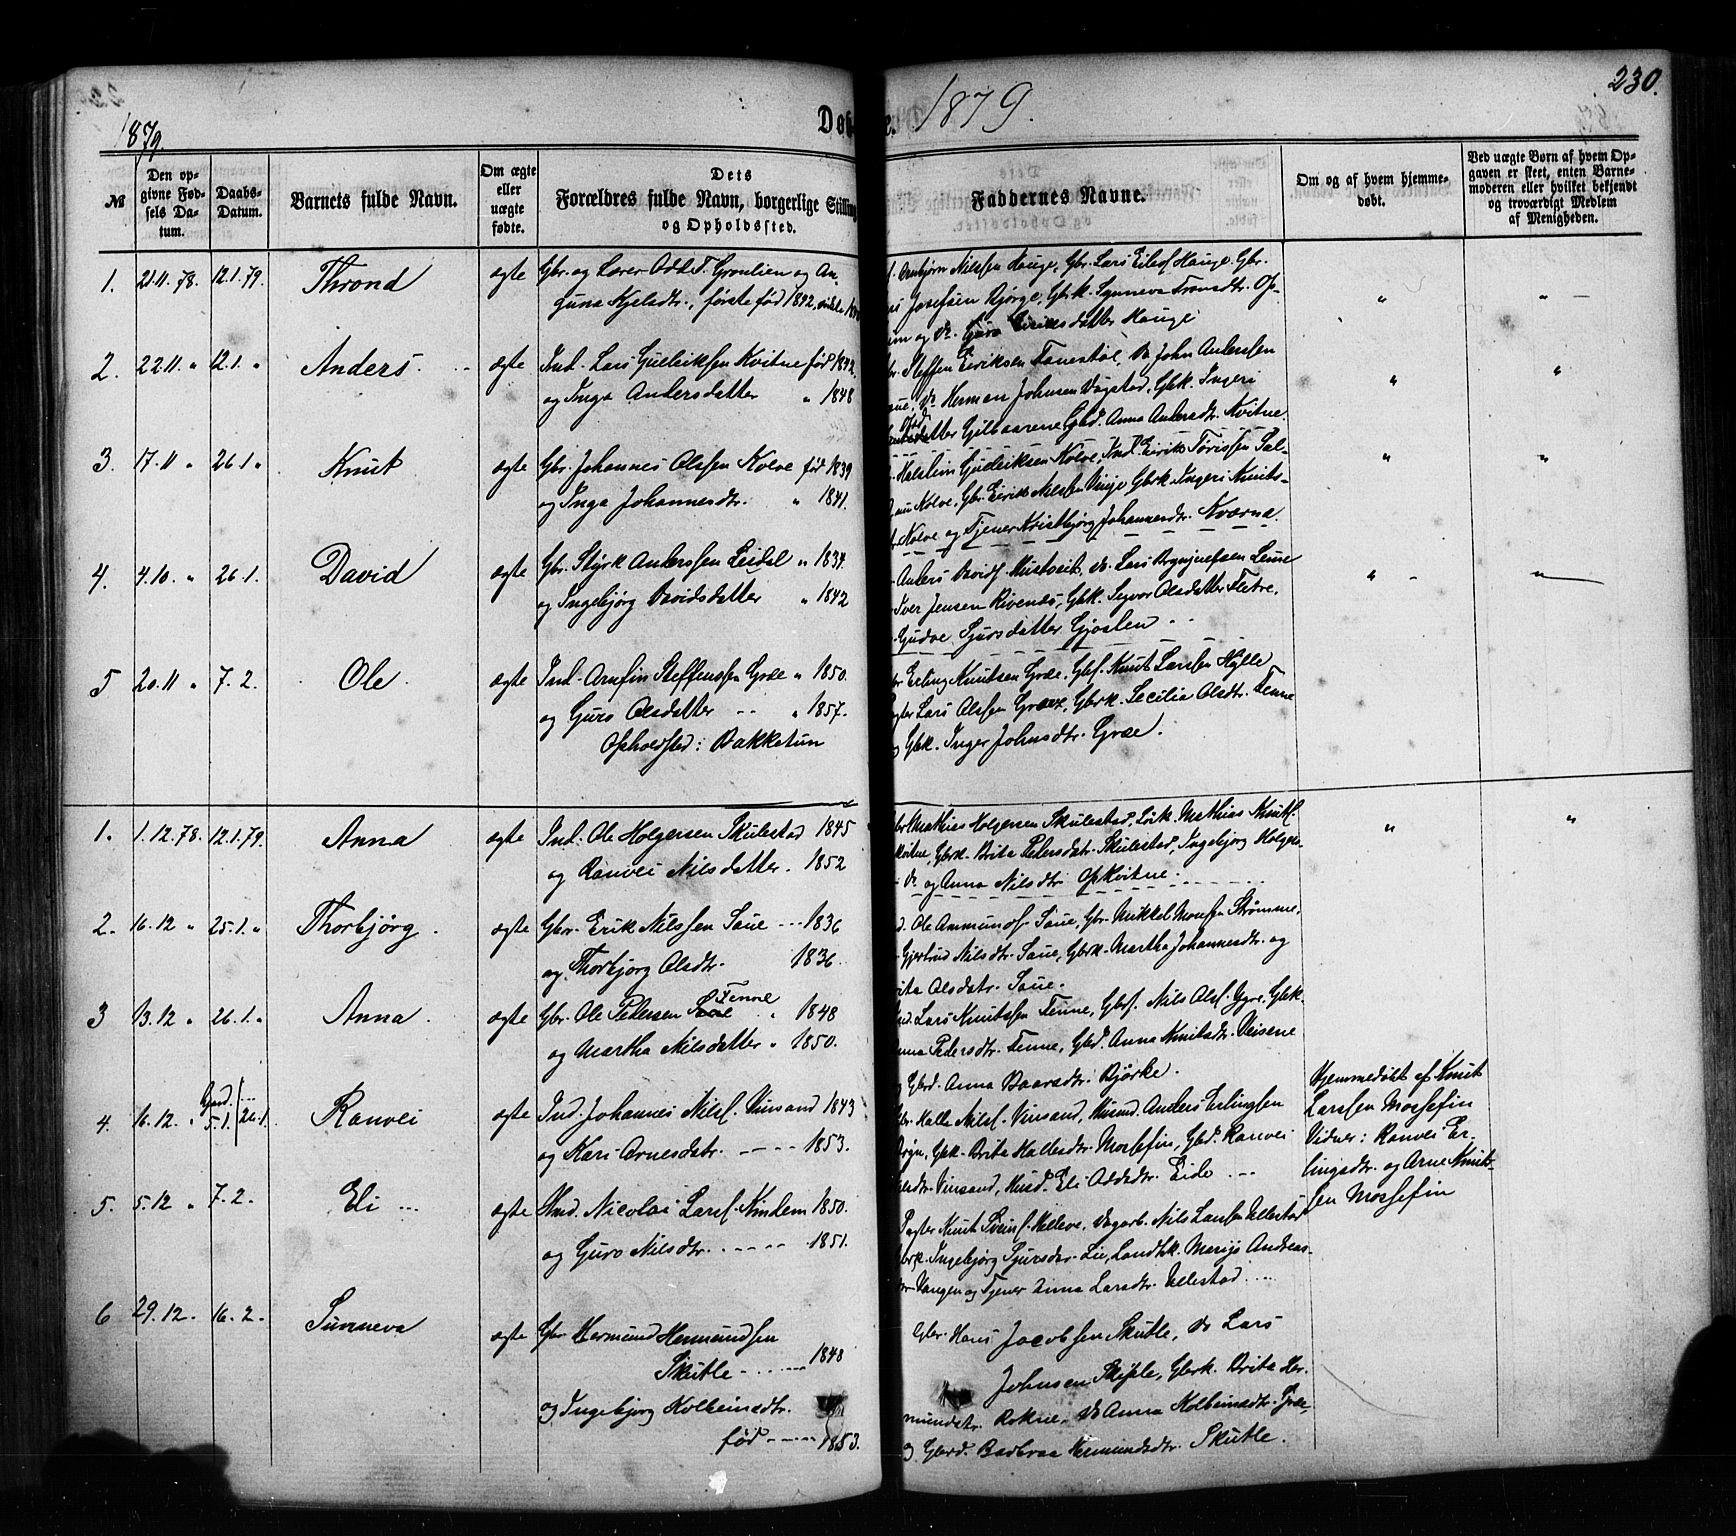 1879.
Døb
1879.
230.
№
Den op-
givne Fød-
sels Da-
tum.
Daabs-
Datum.
Barnets fulde Navn.
Om ægte
eller
uægte
fødte.
Dets
Forældres fulde Navn, borgerlige Stilling
og Opholdssted.
Faddernes Navne.
Om og af hvem hjemme-
døbt.
Ved uægte Børn af hvem Op-
gaven er skeet, enten Barne-
moderen eller hvilket bekjendt
og troværdigt Medlem
af Menigheden.
1. 21.11.78. 12.1.79. Thrond ægte Gbr. og Lærer Odd T. Grønlien og An-
guna Kjelsdtr., første fød 1842, sidste
Arnbjørn Nilssen Hauge, Gbr. Lars Eilefs. Hauge. Gbr.
Josefsen Bjørge, Gbrk. Synneva Tronsdtr. Op-
og do. Guro Eiriksdatter Hauge
2. 22.11 " 12.1. " Anders ægte Ind. Lars Gulleiksen Kvitne fød 1842
og Inga Andersdatter " 1848
Steffen Eiriksen Fanestøl, do John Anderssen
do Herman Johnsen Dagstad, Gbk. Ingeri
Anna Andersdtr. Kvitne.
3. 17.11 " 26.1. " Knut ægte Gbr. Johannes Olssen Kolve fød 1839
og Inga Johannesdtr. " 1841.
Halstein Gulleiksen Kolve, Ind. Eirik Tørissen Sal-
Kolve, Gbr. Eirik Nilssen Vinje Gbrk. Ingeri Knuts-
Kolve og Tjener Kristbjørg Johannesdtr. Kværna.
4. 4.10. " 26.1. David ægte Gbr. Styrk Anderssen Leidal " 1834.
og Ingebjørg Davidsdatter " 1842
Anders Davids. Mustveit, do Lars Brynjulfsen Leine
Iver Jensen Rivenes, Gbk. Sygvor Olsdatter Fletre.
Gudve Sjursdatter Gjøslen
5 20.11 " 7.2. Ole ægte Ind. Arnfin Steffenssen Græe " 1850.
og Guro Olsdatter " 1857.
Opholdsted: Bakketun
Erling Knutsen Græe, Gbs. Knut Larssen Hylle
Lars Olssen Græe, Gbrk. Secilia Olsdtr. Tenne
Gbk. Inger Johnsdtr. Græe.
1. 1.12.78. 12.1.79. Anna ægte Ind. Ole Holgersen Skulestad 1845
og Ranvei Nilsdatter. 1852
Mathias Holgersen Skulestad, Mathias Knuts.
Kvitne, Gbrk. Brita Pedersdtr. Skulestad, Ingebjørg Holgers-
do og Anna Nilsdtr. Opkvitne.
2. 16.12 " 25.1. " Thorbjørg. ægte Gbr. Erik Nilssen Saue 1836
og Thorbjørg Olsdtr. 1836.
Ole Ammunds. Saue, Gbr. Mikkel Monsen Strømme,
Gjertrud Nilsdtr. Saue, Gbrk. Martha Johannesdtr. og
Olsdatr. Saue.
3 13.12 " 26.1. " Anna. ægte Gbr. Ole Pedersen Tenne " 1848
og Martha Nilsdatter " 1850.
Lars Knutssen Tenne, Gbs. Nils Ols. Ygre, Gbk.
Anna Pedersdtr. Tenne, Gbd. Anna Knutsdtr. Veisene
Gbrd. Anna Baarsdtr. Bjørke.
4. 16.12. " 5.1. 26.1. Ranvei ægte Ind. Johannes Nils. Vinsand 1843
og Kari Arnesdatr. 1853.
Halle Nils. Vinsand, Husmd. Anders Erlingsen
Gbk. Brita Hallesdtr. Mossefin, Gbd. Ranvei
Vinsand, Husd. Eli Oddsdtr. Eide
Hjemmedøbt af Knut
Larssen Mossefin
Vidner: Ranvei Er-
lingsdtr. og Arne Knut-
sen Mossefin
5. 5.12 " 7.2. Eli ægte Hmd. Nicolai Lars. Kindem 1850.
og Guro Nilsdtr. 1851.
Knut Sveins. Helleve, Dagarb. Nils Larssen Ullestad
Ingebjørg Sjursdtr. Lie, Landhk. Marijo Andreas-
Vangen og Tjener Anna Larsdtr. Ullestad
6 29.12. 16.2. Sunneva ægte Gbr. Hermund Hermundsen
Skutle 1848
og Ingebjørg Kolbeinsdtr.
fød 1853.
Gbr. Hans Jacobsen Skutle, do Lars
Johnsen Skiple, Gbrk. Brita Her-
mundstr. Rokne, do Anna Kolbeinsdtr.
og Gbrd. Barbraa Hermundsdtr. Skutle.